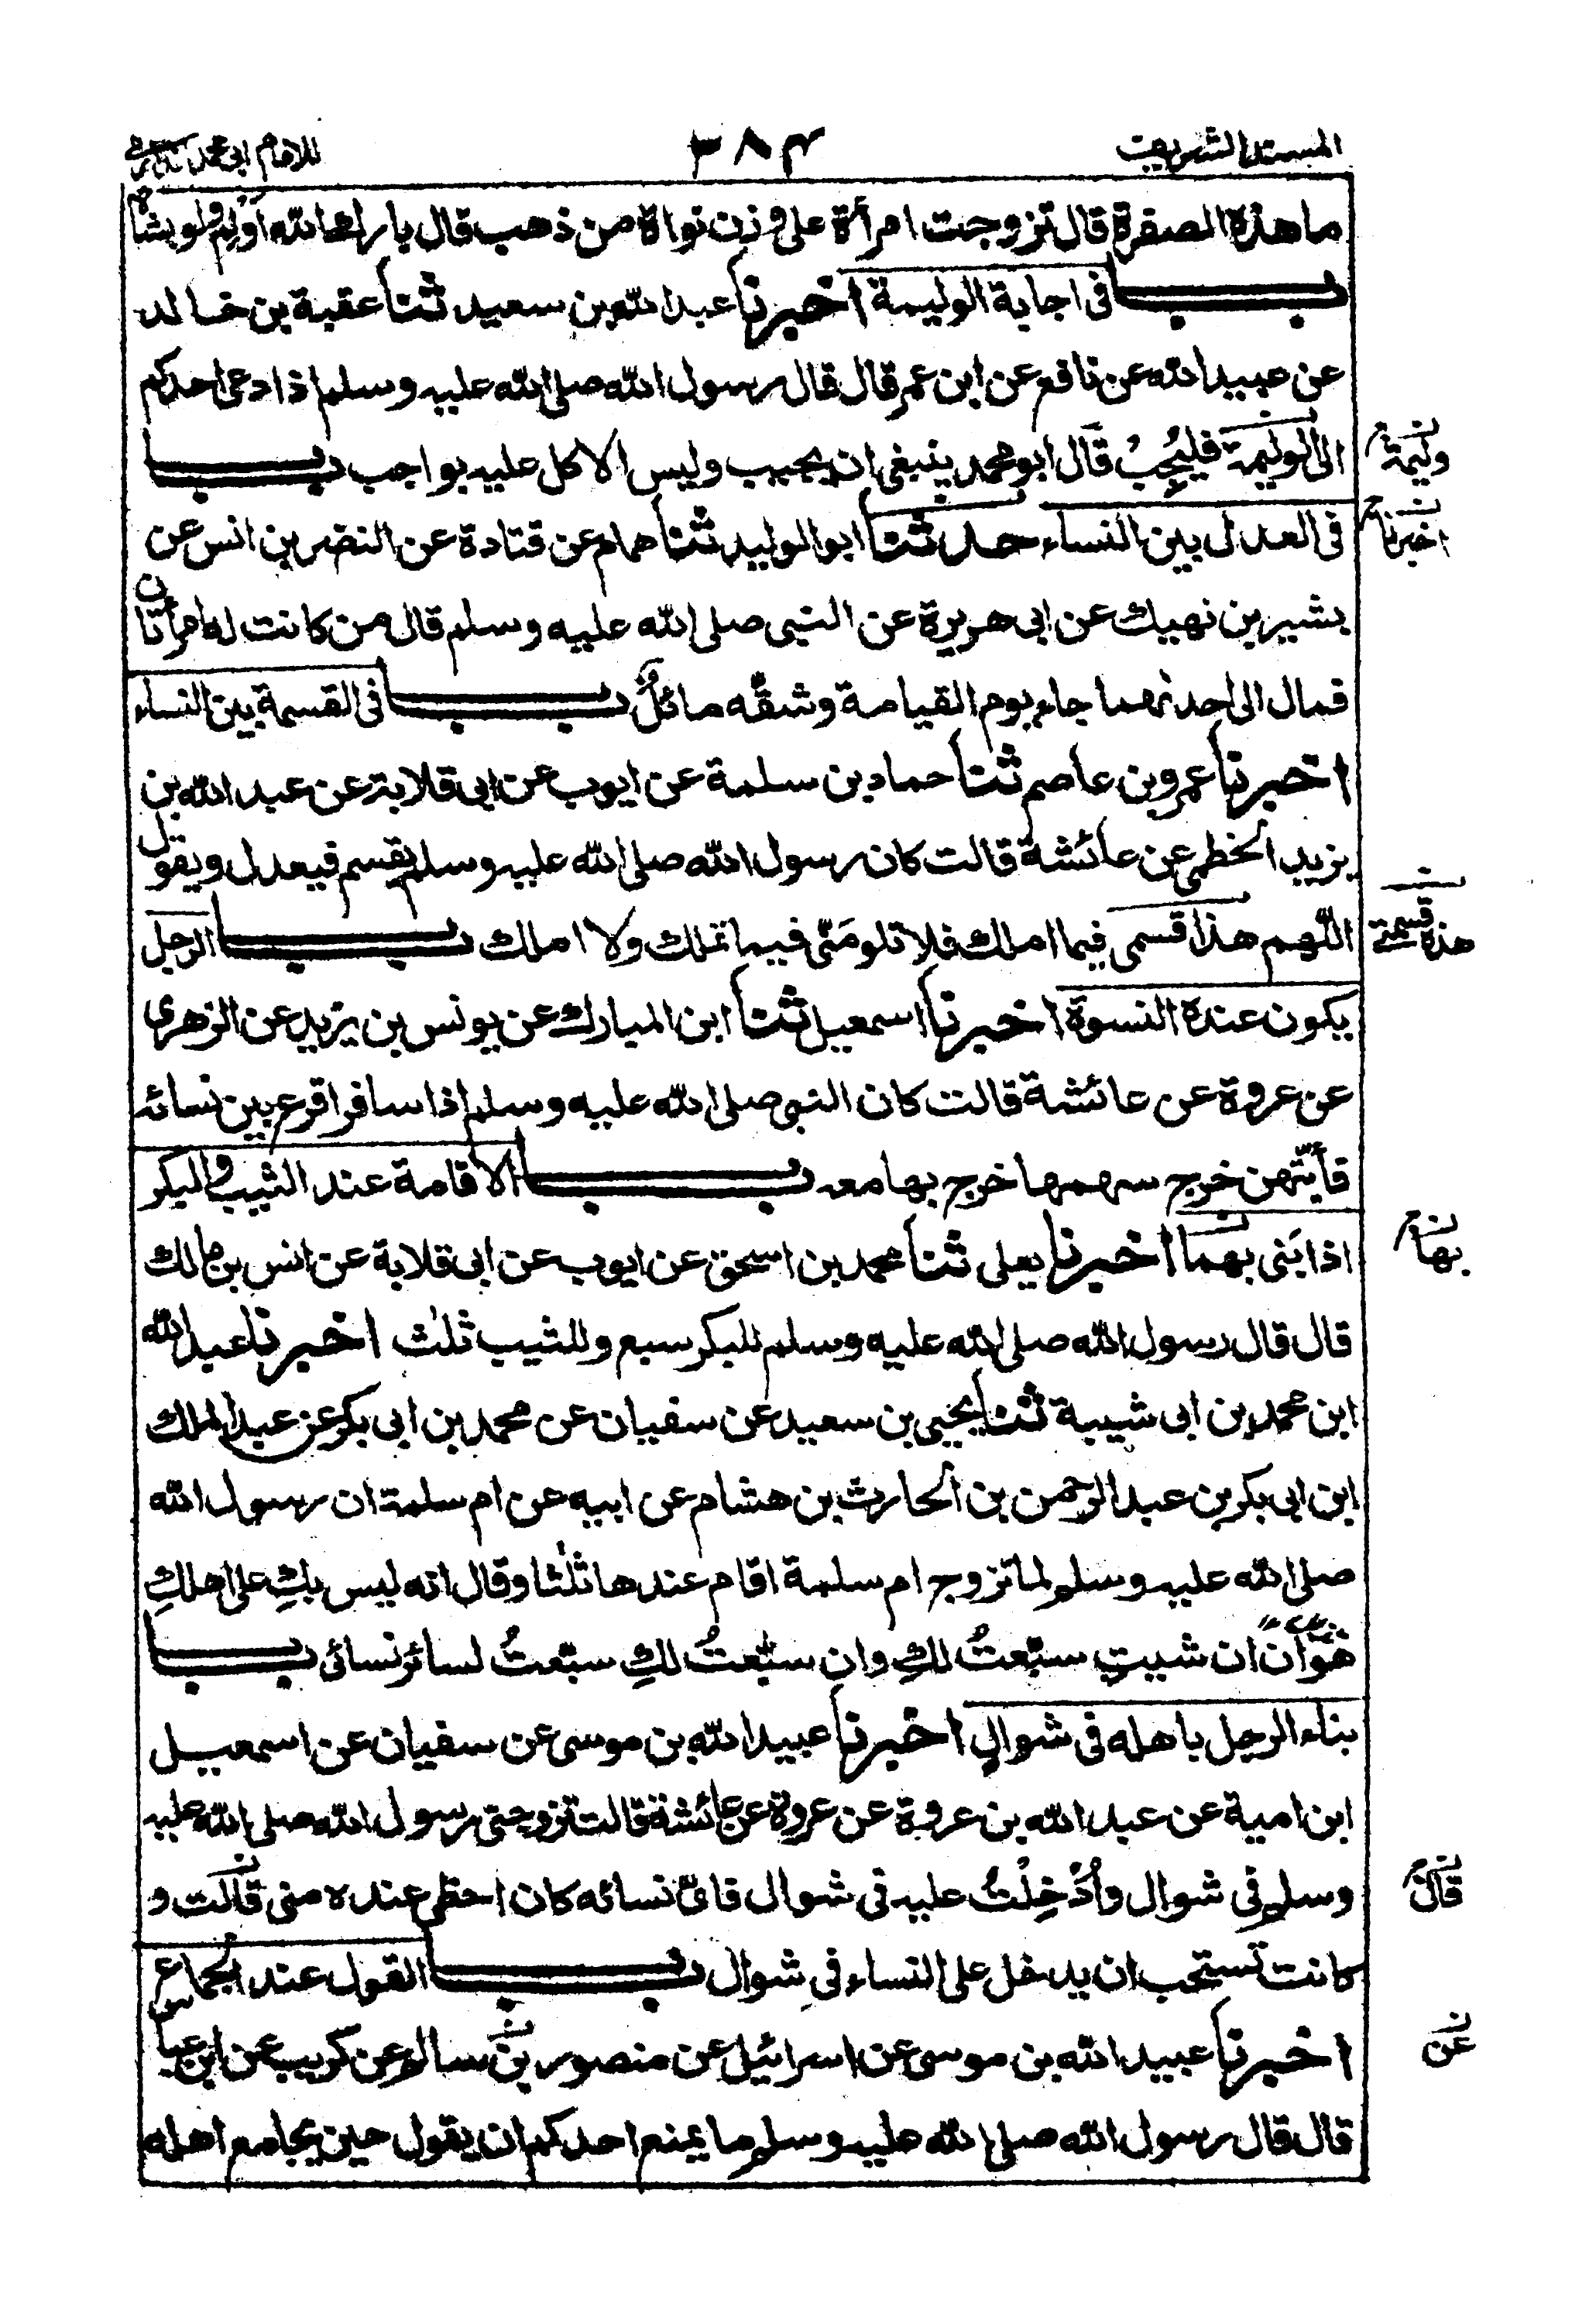 المسند الشريف
٣٨٤
للامام ابي محمد
ما هذه الصفرة قال تزوجت امرأة على وزن نواة من ذهب قال بارك الله اَوْلِم ولو بشاة
بـــاب فى اجابة الوليمة اخبرنا عبد الله بن سعيد ثنا عقبة بن خالد
عن عبيد الله عن نافع عن ابن عمر قال قال رسول الله صلى الله عليه وسلم اذا دعى احدكم
الى الوليمة فليُجِبْ قال ابو محمد ينبغى ان يجيب وليس الاكل عليه بواجب بـــاب
وليمة
فى العدل بين النساء حدثنا ابو الوليد ثنا همام عن قتادة عن النضر بن انس عن
اخبرنا
بشير بن نهيك عن ابى هريرة عن النبى صلى الله عليه وسلم قال من كانت له امرأتان
فمال الى احدٮهما جاء يوم القيامة وشقُّه مائلٌ بـــاب فى القسمة بين النساء
اخبرنا عمرو بن عاصم ثنا حماد بن سلمة عن ايوب عن ابى قلابة عن عبد الله بن
يزيد الخطمى عن عائشة قالت كان رسول الله صلى الله عليه وسلم يقسم فيعدل ويقول
اللّهم هذا قسمى فيما املك فلا تلومَنّى فيما تملك ولا املك بـــاب الرجل
هذه قسمتى
يكون عنده النسوة اخبرنا اسمعيل ثنا ابن المبارك عن يونس بن يزيد عن الزهرى
عن عروة عن عائشة قالت كان النبى صلى الله عليه وسلم اذا سافر اقرع بين نسائه
فأيّتهن خرج سهمها خرج بها معه بـــاب الاقامة عند الثيب والبكر
اذا بَنى بهما اخبرنا يعلى ثنا محمد بن اسحق عن ايوب عن ابى قلابة عن انس بن مالك
بها
قال قال رسول الله صلى الله عليه وسلم للبكر سبع وللثيب ثلٰث اخبرنا عبد الله
ابن محمد بن ابى شيبة ثنا يحيى بن سعيد عن سفيان عن محمد بن ابى بكر عن عبد الملك
ابن ابى بكر بن عبد الرحمن بن الحارث بن هشام عن ابيه عن ام سلمة ان رسول الله
صلى الله عليه وسلم لما تزوج ام سلمة اقام عندها ثلٰثا وقال انه ليس بكِ على اهلكِ
هَوَانٌ ان شيتِ سبّعتُ لكِ وان سبّعتُ لكِ سبّعتُ لسائر نسائى بـــاب
بناء الرجل باهله فى شوال اخبرنا عبيد الله بن موسى عن سفيان عن اسمعيل
ابن امية عن عبد الله بن عروة عن عروة عن عائشة قالت تزوجنى رسول الله صلى الله عليه
وسلم فى شوال واُدْخِلْتُ عليه فى شوال فاىّ نسائه كان احظى عنده منى قالت و
قال
كانت تستحب ان يدخل على النساء فى شوال بـــاب القول عند الجماع
اخبرنا عبيد الله بن موسى عن اسرائيل عن منصور بن سالم عن كريب عن ابن عباس
عن
قال قال رسول الله صلى الله عليه وسلم ما يمنع احدكم ان يقول حين يجامع اهله